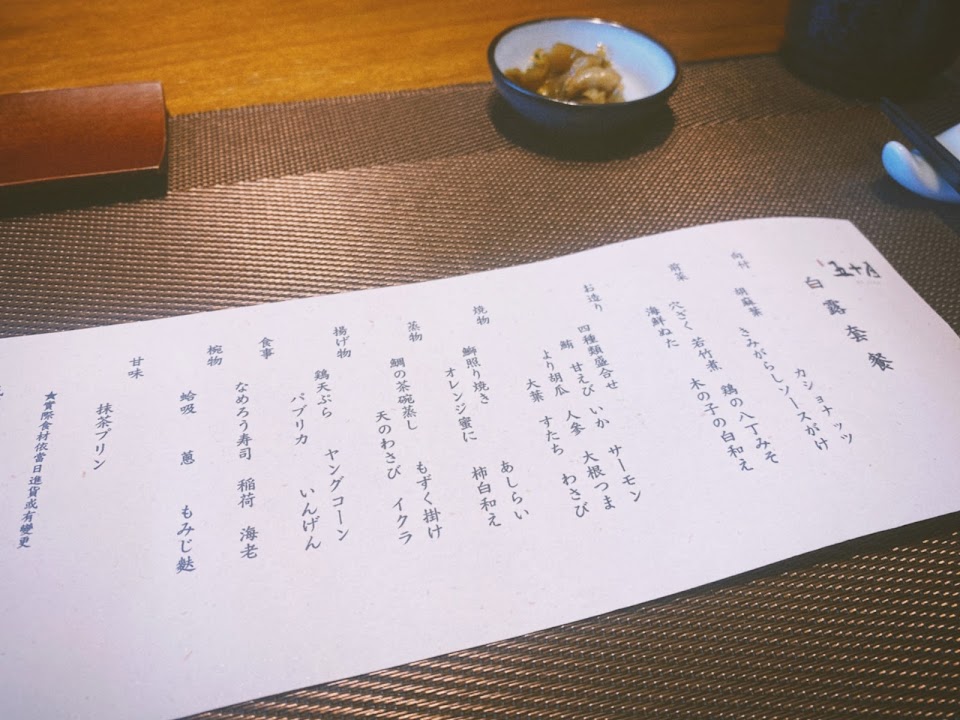 五十月
白露套餐
向付
胡麻葉 カシュナッツ
きみがらしソースがけ
前菜
穴ざく 若竹煮 鶏の八丁みそ
海鮮ぬた 木の子の白和え
お造り
四種類盛合せ いか サーモン
鮪 甘えび 人参 大根つま
より胡瓜 すだち わさび
大葉
焼物
鰤照り焼き あしらい
オレンジ蜜に 柿白和え
蒸物
鯛の茶碗蒸し もずく掛け
天のわさび イクラ
揚げ物
鶏天ぷら ヤングコーン
パプリカ いんげん
食事
なめろう寿司 稲荷 海老
椀物
蛤吸 蔥 もみじ麩
甘味
抹茶プリン
★實際食材依當日進貨或有變更